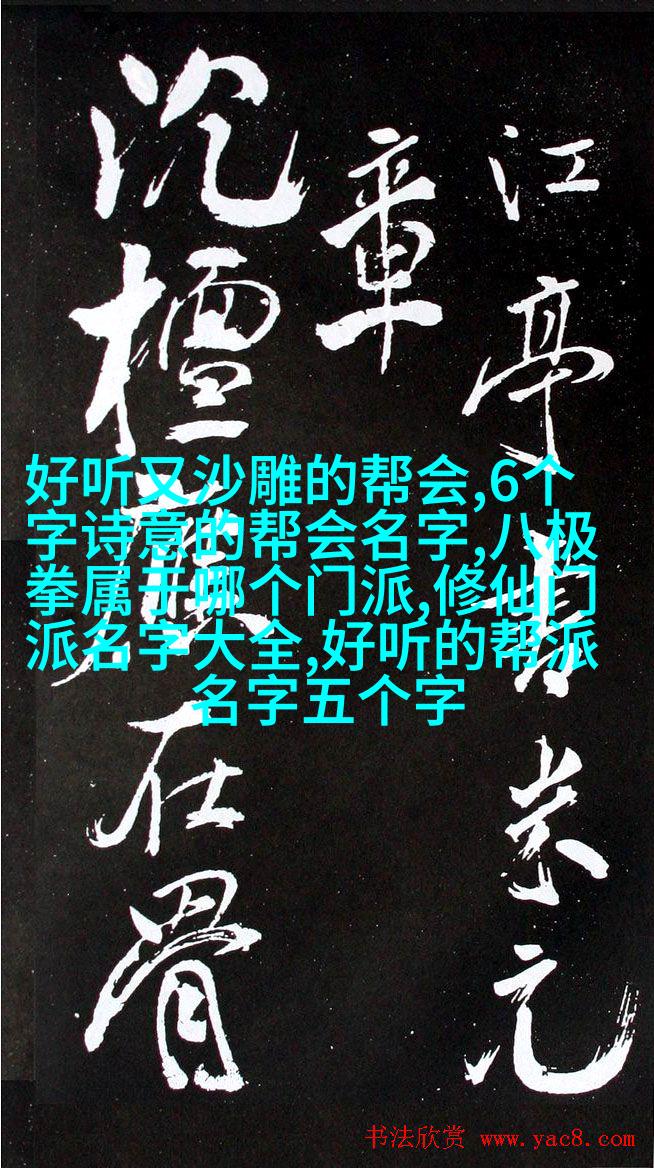 江亭米元
章
沉檀在骨
好听又沙雕的帮会,6个
字诗意的帮会名字,八极
拳属于哪个门派,修仙门
派名字大全,好听的帮派
名字五个字
书法欣赏 www.yac8.com